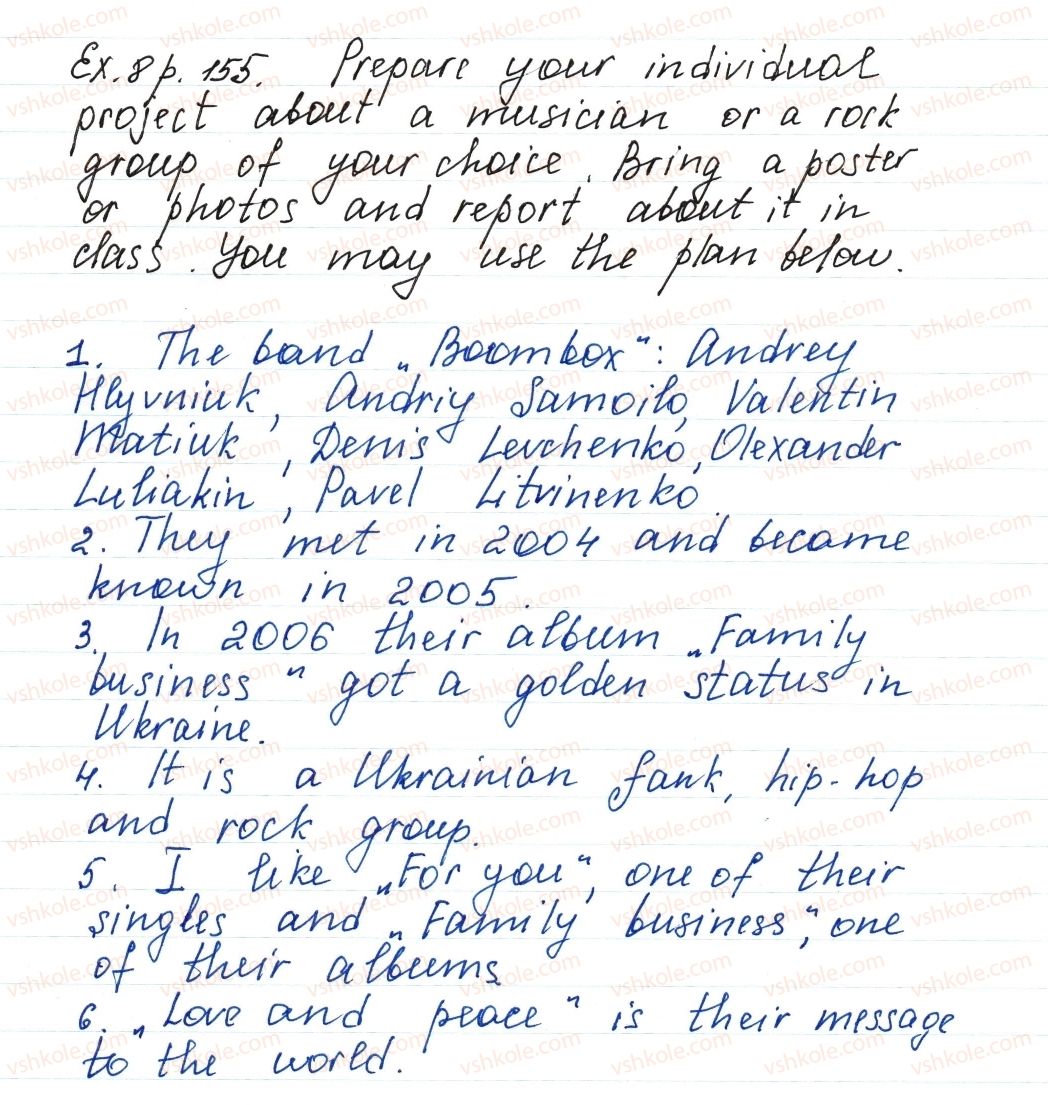 Ex. 8 p. 155. Prepare your individual
project about a musician or a rock
group of your choice. Bring a poster
or photos and report about it in
class. You may use the plan below.
1. The band „Boombox": Andrey
Hlyvniuk, Andriy Samoilo, Valentin
Matiuk, Denis Levchenko, Olexander
Luliakin, Pavel Litvinenko.
2. They met in 2004 and became
known in 2005.
3. In 2006 their album „Family
business" got a golden status in
Ukraine.
4. It is a Ukrainian fank, hip-hop
and rock group.
5. I like „For you", one of their
singles and „Family business", one
of their albums.
6. „Love and peace" is their message
to the world.
vshkole.com